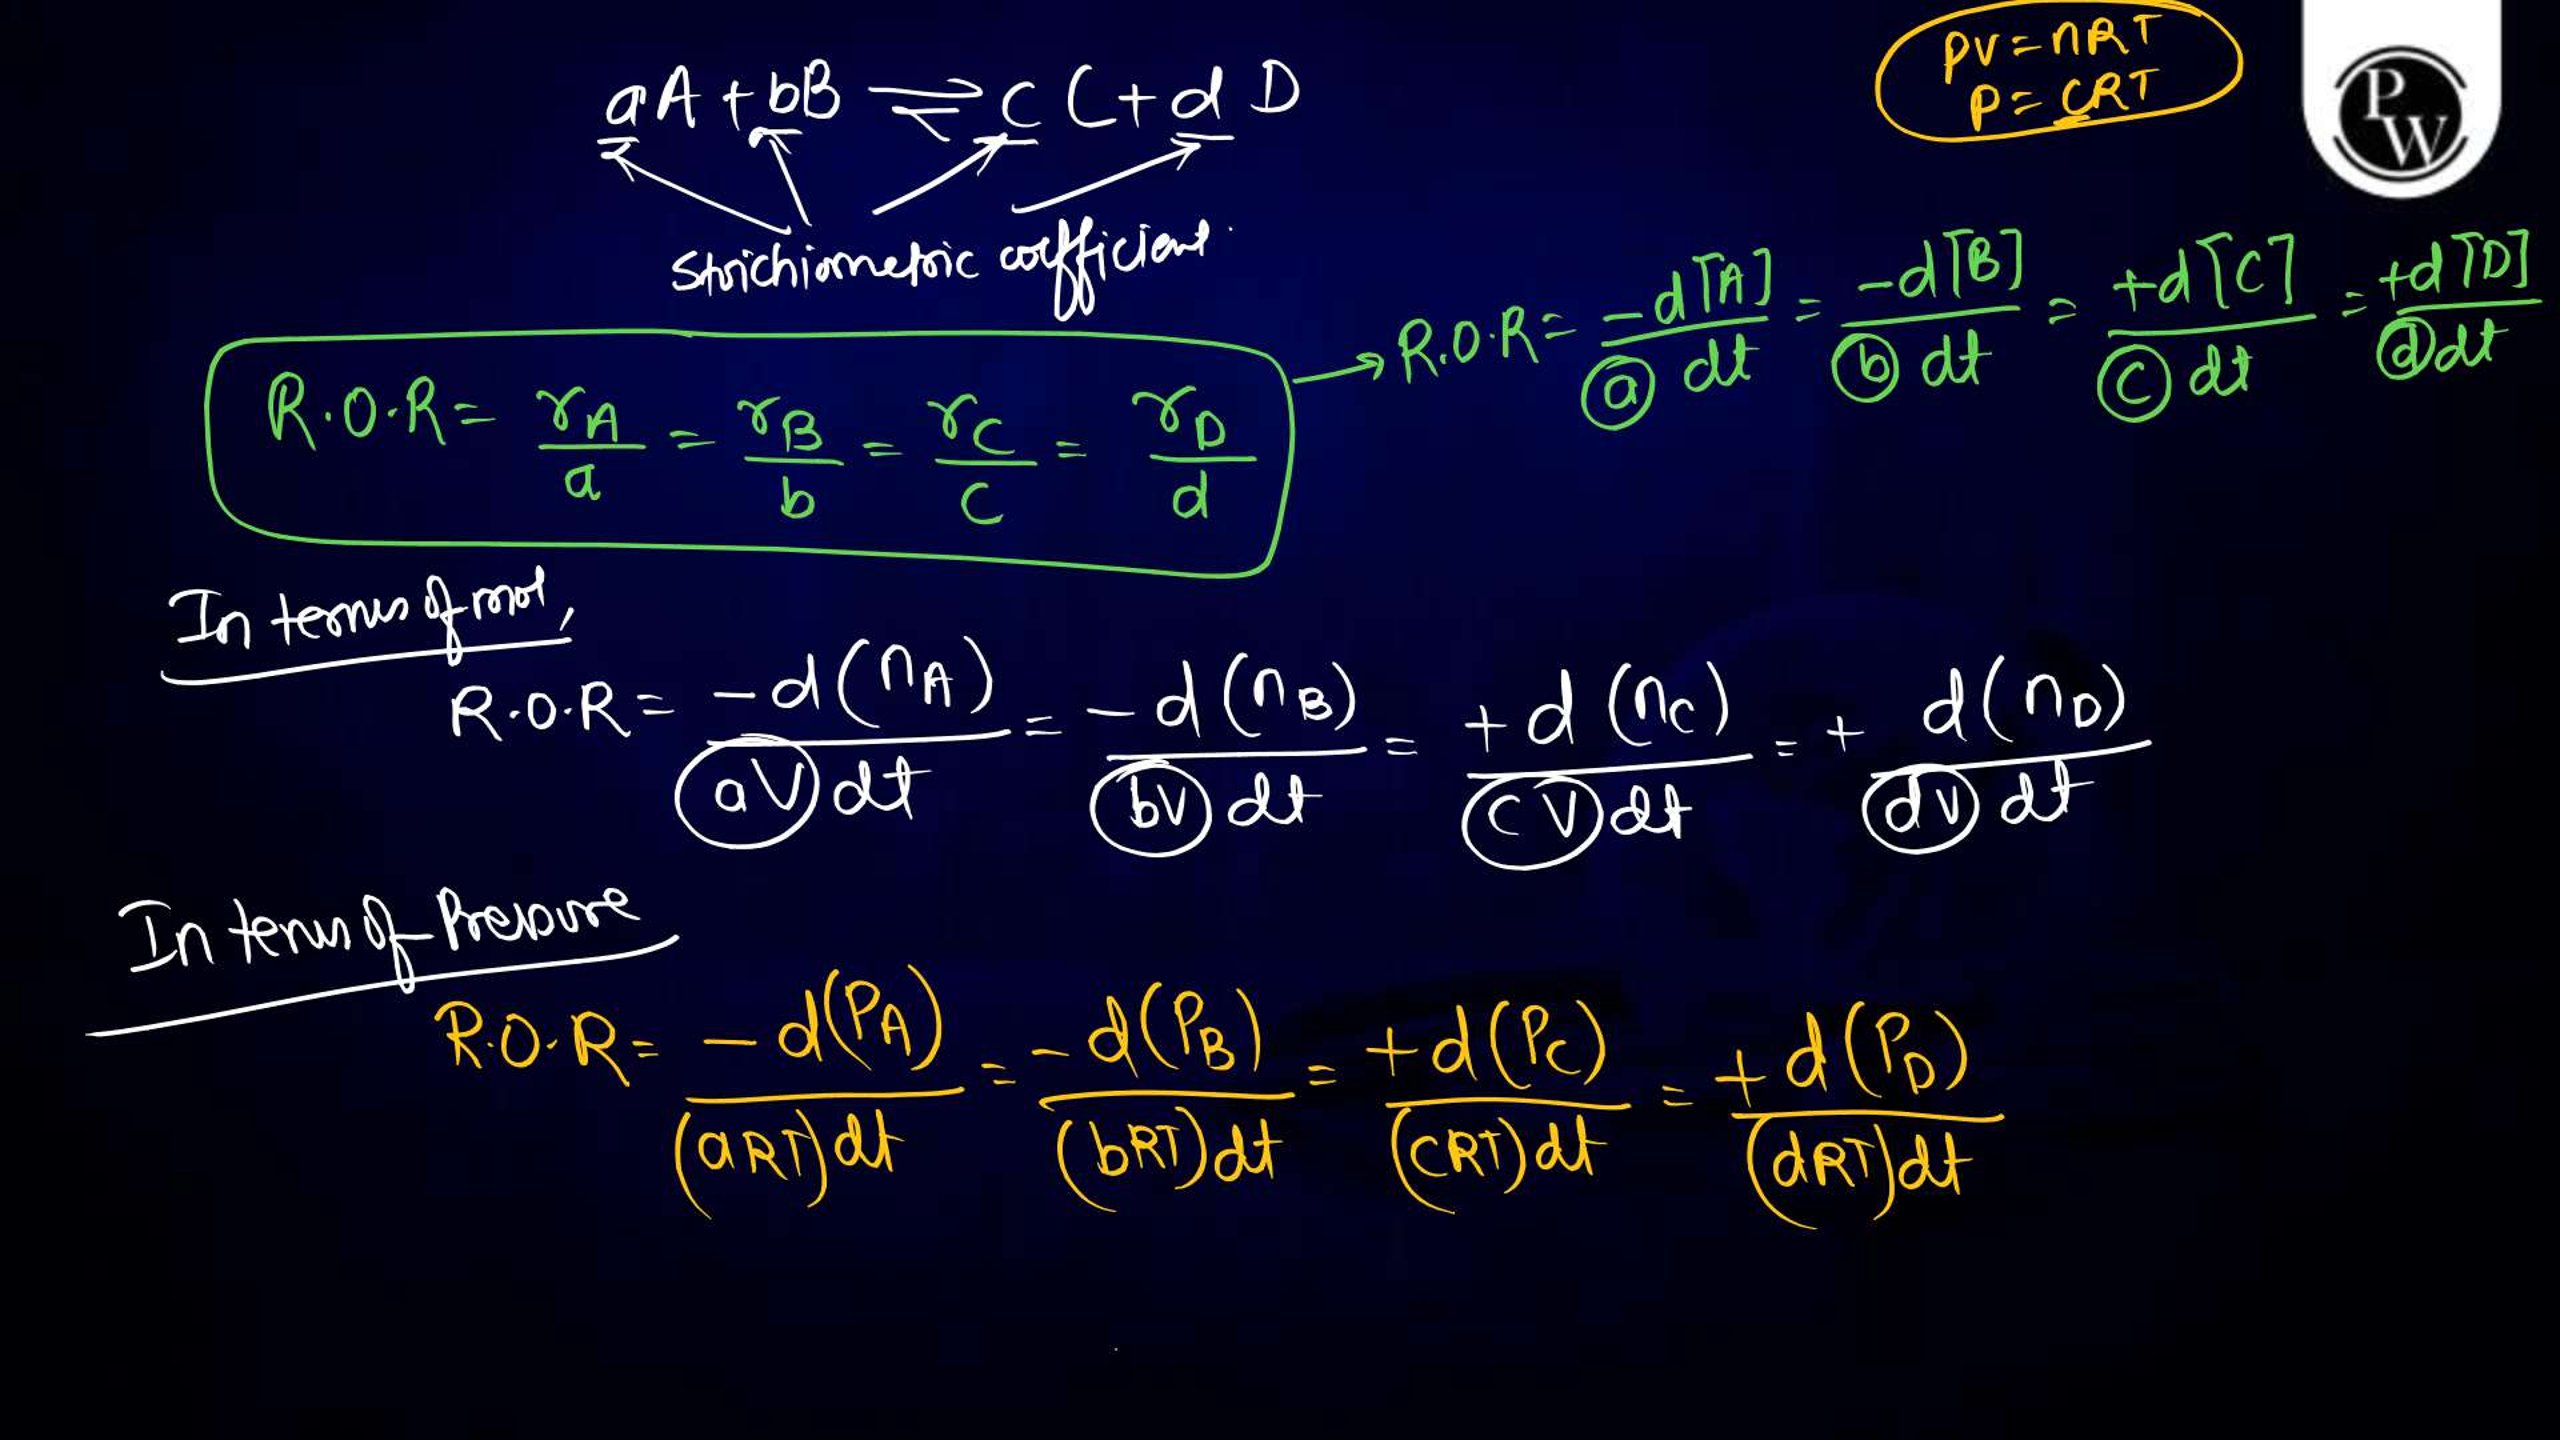 aA + bB ⇌ c C + d D
PV = nRT
P = CRT
PW
Stoichiometric coefficient.
R.O.R = rA/a = rB/b = rC/c = rD/d
→ R.O.R = -d[A]/a dt = -d[B]/b dt = +d[C]/c dt = +d[D]/d dt
In terms of mol,
R.O.R = -d(nA)/aV dt = -d(nB)/bV dt = +d(nC)/cV dt = + d(nD)/dV dt
In terms of Pressure
R.O.R = -d(PA)/(aRT)dt = -d(PB)/(bRT)dt = +d(PC)/(cRT)dt = +d(PD)/(dRT)dt